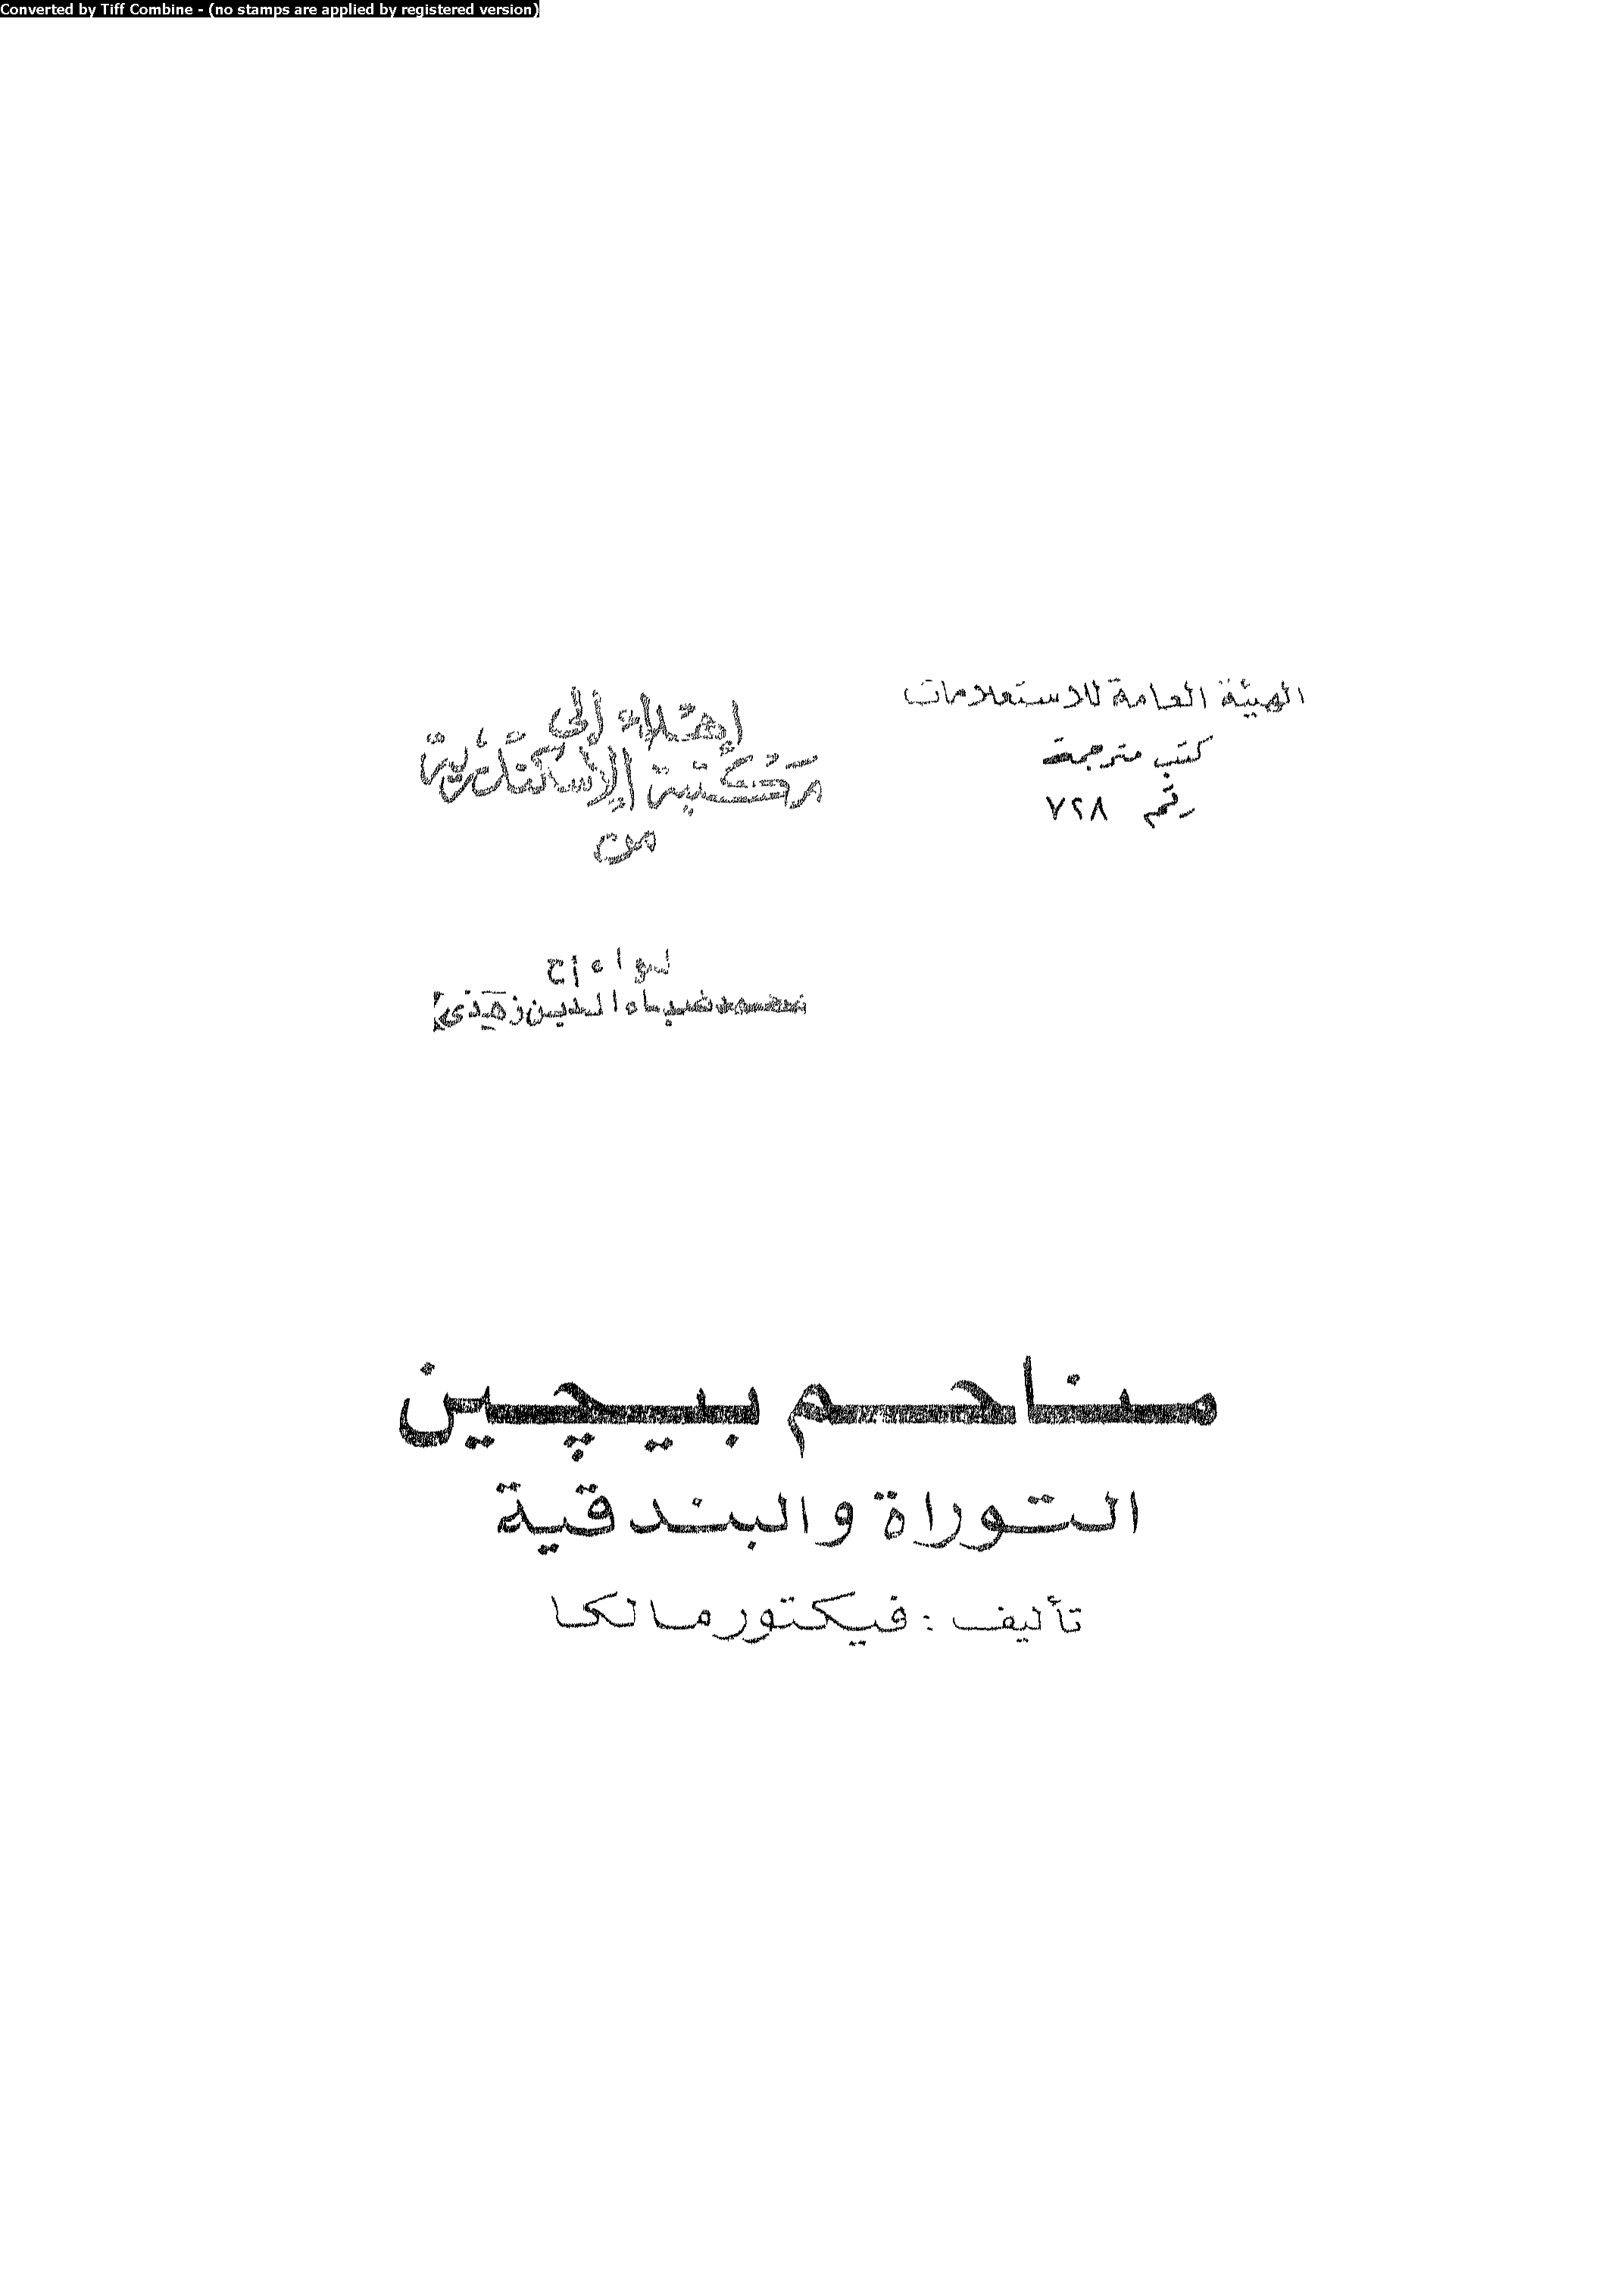 Converted by Tiff Combine - (no stamps are applied by registered version)
الهيئة العامة للاستعلامات
كتب مترجمة
رقم ٧٢٨
إهداء إلى
مكتبة الإسكندرية
من
لواء اح
محمد ضياء الدين زهدى
مناحم بيچين
التوراة والبندقية
تأليف : فيكتور مالكا